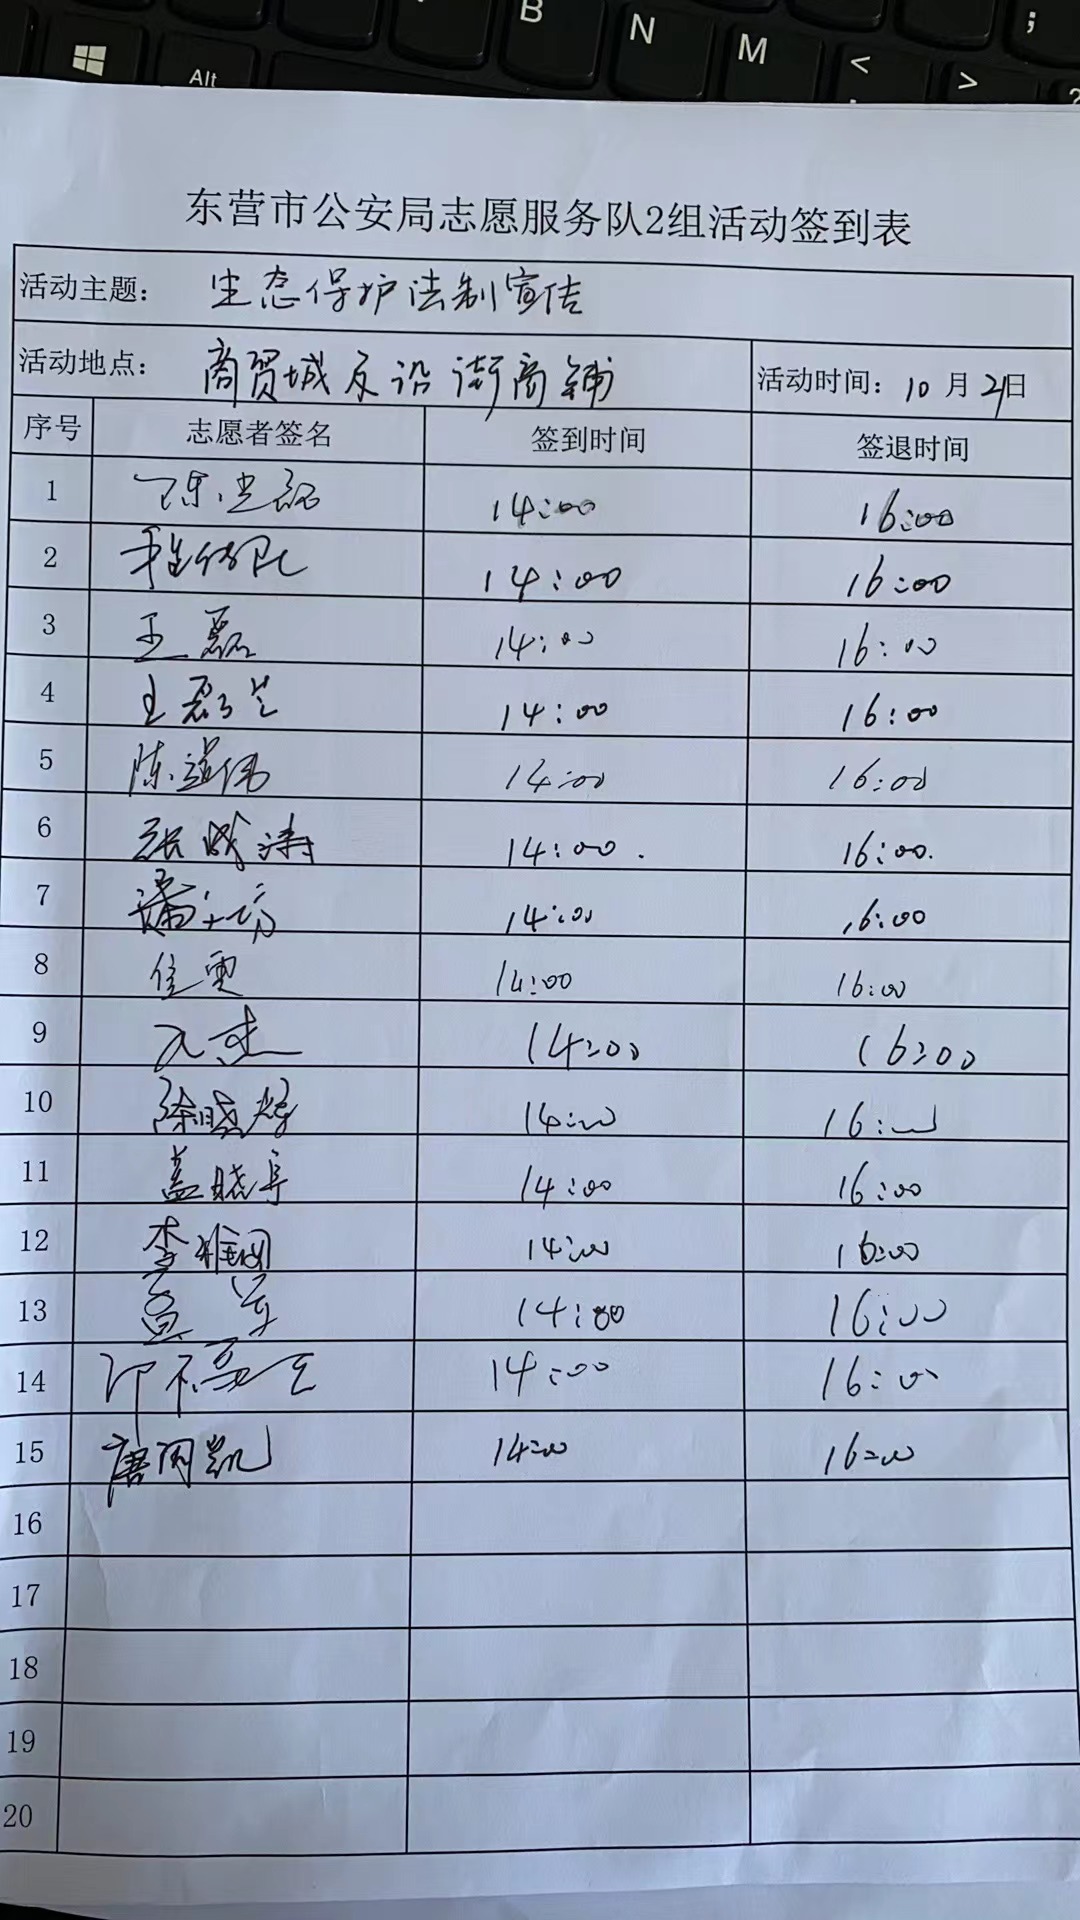 B N M < > ;
Alt
东营市公安局志愿服务队2组活动签到表
活动主题： 生态保护法制宣传
活动地点： 商贸城及沿街商铺 活动时间：10月21日
序号 志愿者签名 签到时间 签退时间
1 14:00 16:00
2 14:00 16:00
3 王磊 14:00 16:00
4 14:00 16:00
5 陈道伟 14:00 16:00
6 张成涛 14:00 16:00.
7 14:00 16:00
8 14:00 16:00
9 14:00 16:00
10 14:00 16:00
11 盖晓亭 14:00 16:00
12 李雅囡 14:00 16:00
13 14:00 16:00
14 14:00 16:00
15 唐同凯 14:00 16:00
16
17
18
19
20